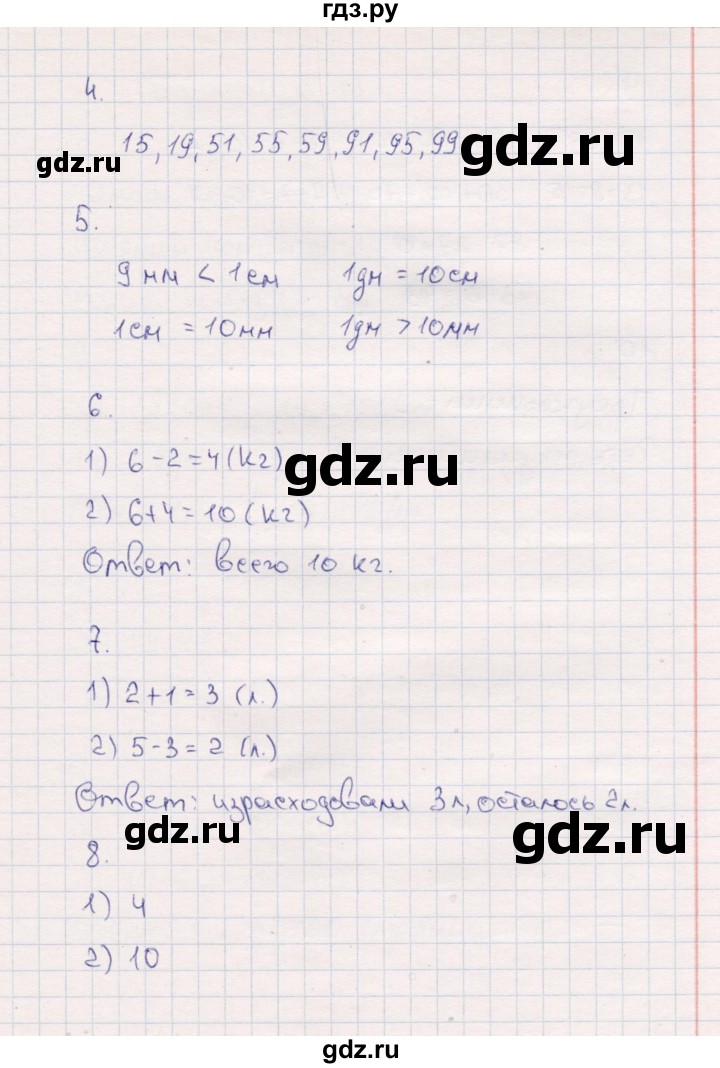 гдз.ру
4.
15, 19, 51, 55, 59, 91, 95, 99
gdz.ru
gdz.ru
5.
9 мм < 1 см 1дм = 10см
1см = 10мм 1дм > 10мм
6.
1) 6 - 2 = 4 (кг)
gdz.ru
2) 6 + 4 = 10 (кг)
Ответ: всего 10 кг.
7.
1) 2 + 1 = 3 (л.)
2) 5 - 3 = 2 (л.)
Ответ: израсходовали 3 л, осталось 2 л.
gdz.ru
gdz.ru
8.
1) 4
2) 10
gdz.ru